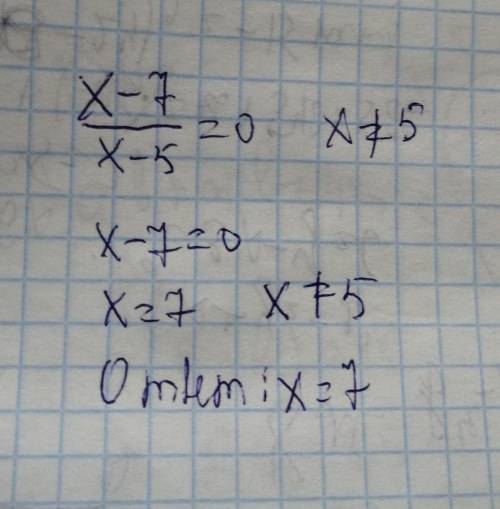 x-7
x-5 =0 x≠5
x-7=0
x=7 x≠5
Ответ: x=7